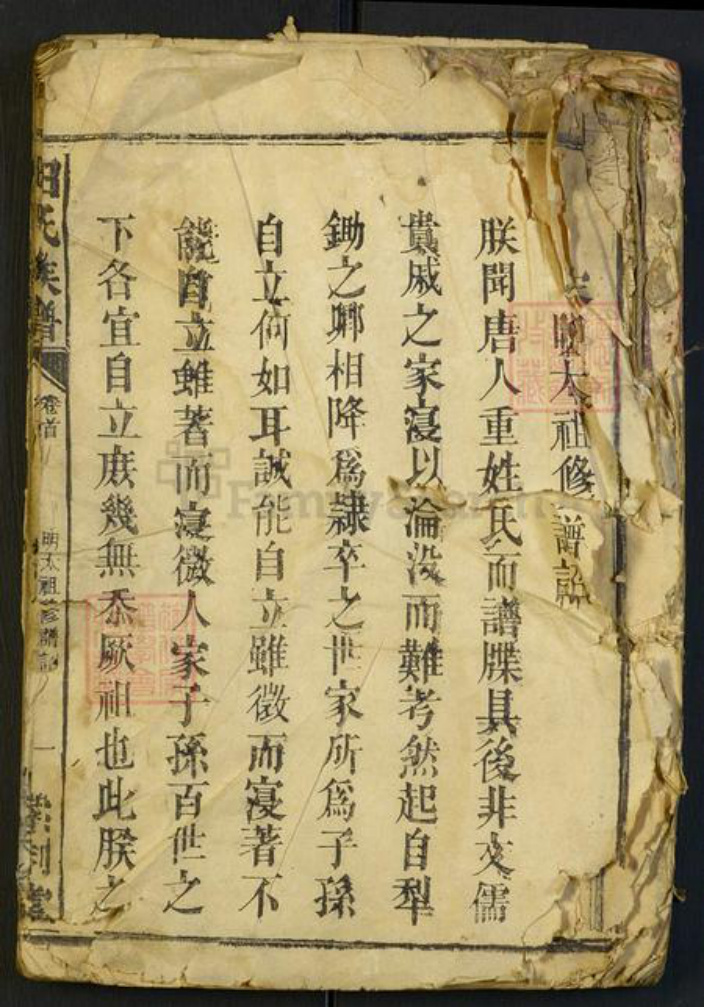 明太祖修譜詔
朕聞唐人重姓氏而譜牒具後非文儒
貴戚之家寖以淪没而難考然起自犁
鋤之鄉相降爲隷卒之世家所爲子孫
自立何如耳誠能自立雖微而寖著不
能自立雖著而寖微人家子孫百世之
下各宜自立庶幾無忝厥祖也此朕之
氏族譜
卷首
明太祖修譜詔
一